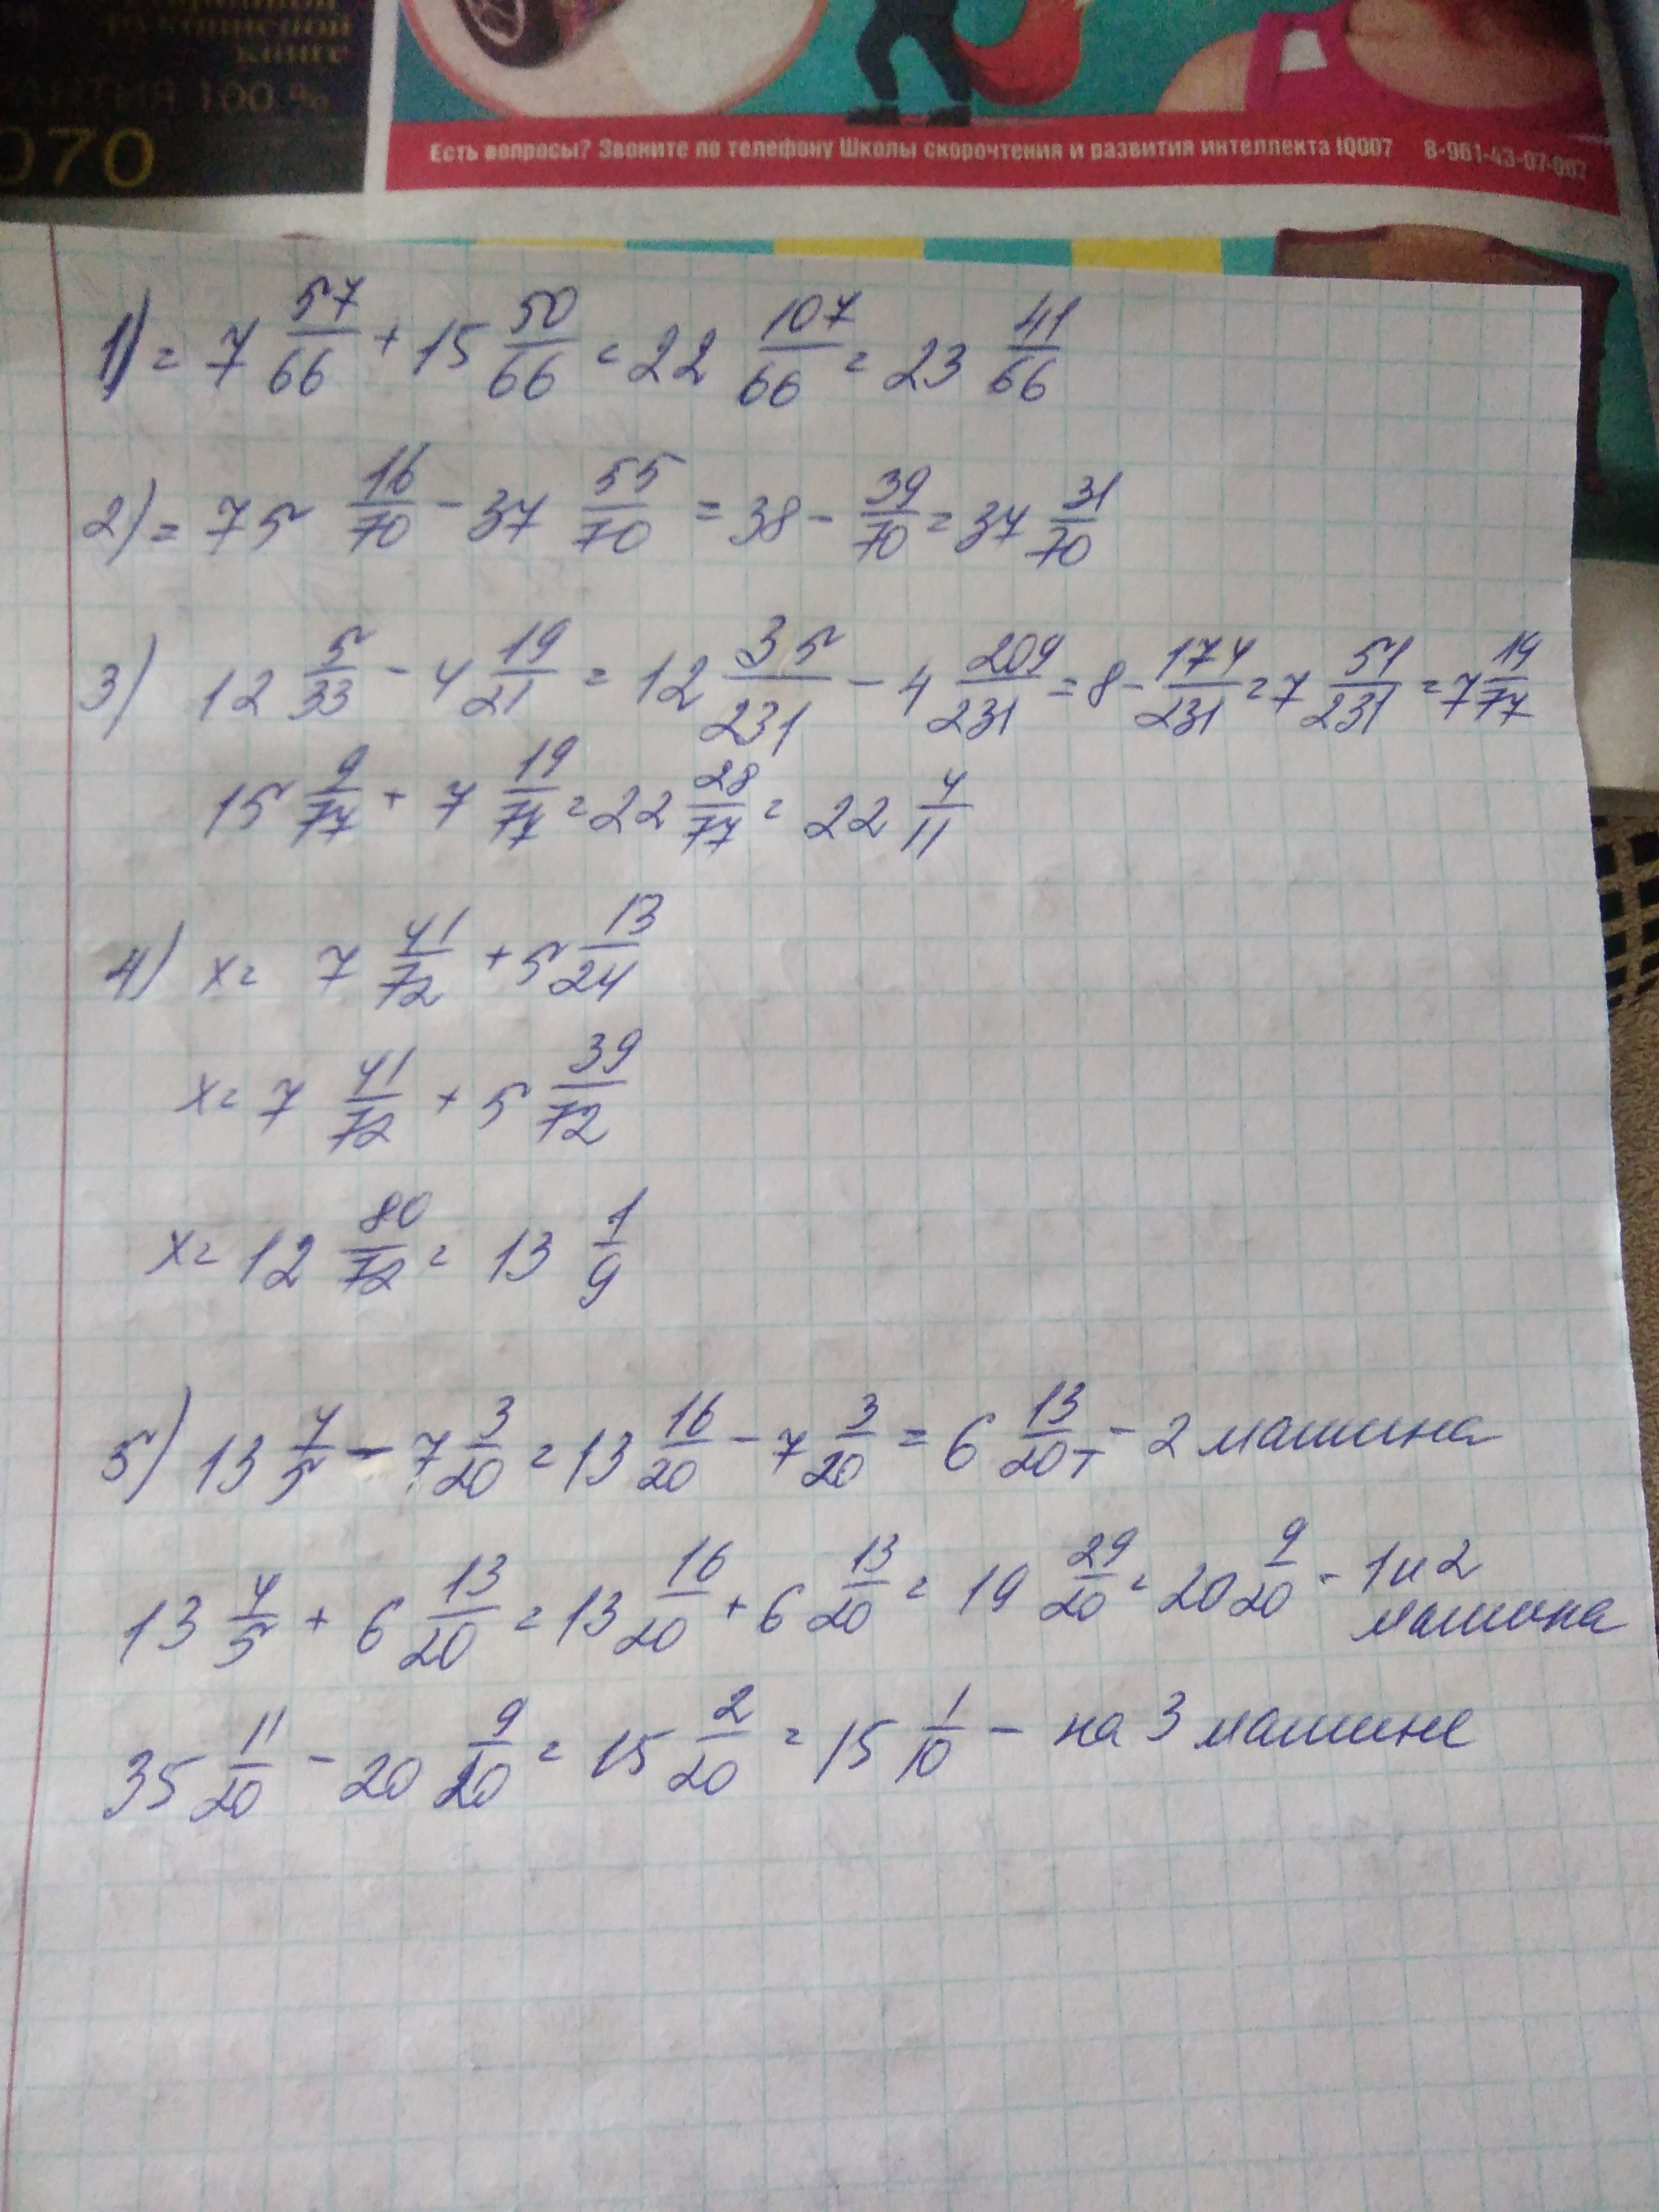 книге
100 %
070
Есть вопросы? Звоните по телефону Школы скорочтения и развития интеллекта IQ007 8-961-43-07-007
1) = 7 57/66 + 15 50/66 = 22 107/66 = 23 41/66
2) = 75 16/70 - 37 55/70 = 38 - 39/70 = 37 31/70
3) 12 5/33 - 4 19/21 = 12 35/231 - 4 209/231 = 8 - 174/231 = 7 51/231 = 7 19/77
15 9/77 + 7 19/77 = 22 28/77 = 22 4/11
4) x = 7 41/72 + 5 13/24
x = 7 41/72 + 5 39/72
x = 12 80/72 = 13 1/9
5) 13 4/5 - 7 3/20 = 13 16/20 - 7 3/20 = 6 13/20 т - 2 машина
13 4/5 + 6 13/20 = 13 16/20 + 6 13/20 = 19 29/20 = 20 9/20 - 1 и 2
машина
35 11/20 - 20 9/20 = 15 2/20 = 15 1/10 - на 3 машине